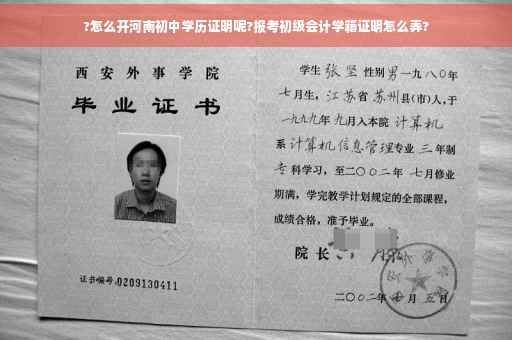 ?怎么开河南初中学历证明呢?报考初级会计学籍证明怎么弄?
西安外事学院
毕业证书
证书编号:0209130411
学生 张坚 性别 男 一九八〇年
七月生, 江苏省 苏州 县(市)人,于
一九九九年 九月入本院 计算机
系 计算机信息管理 专业 三 年制
专科学习, 至二〇〇二年 七月修业
期满, 学完教学计划规定的全部课程,
成绩合格, 准予毕业。
院长
二〇〇二年 月 五日